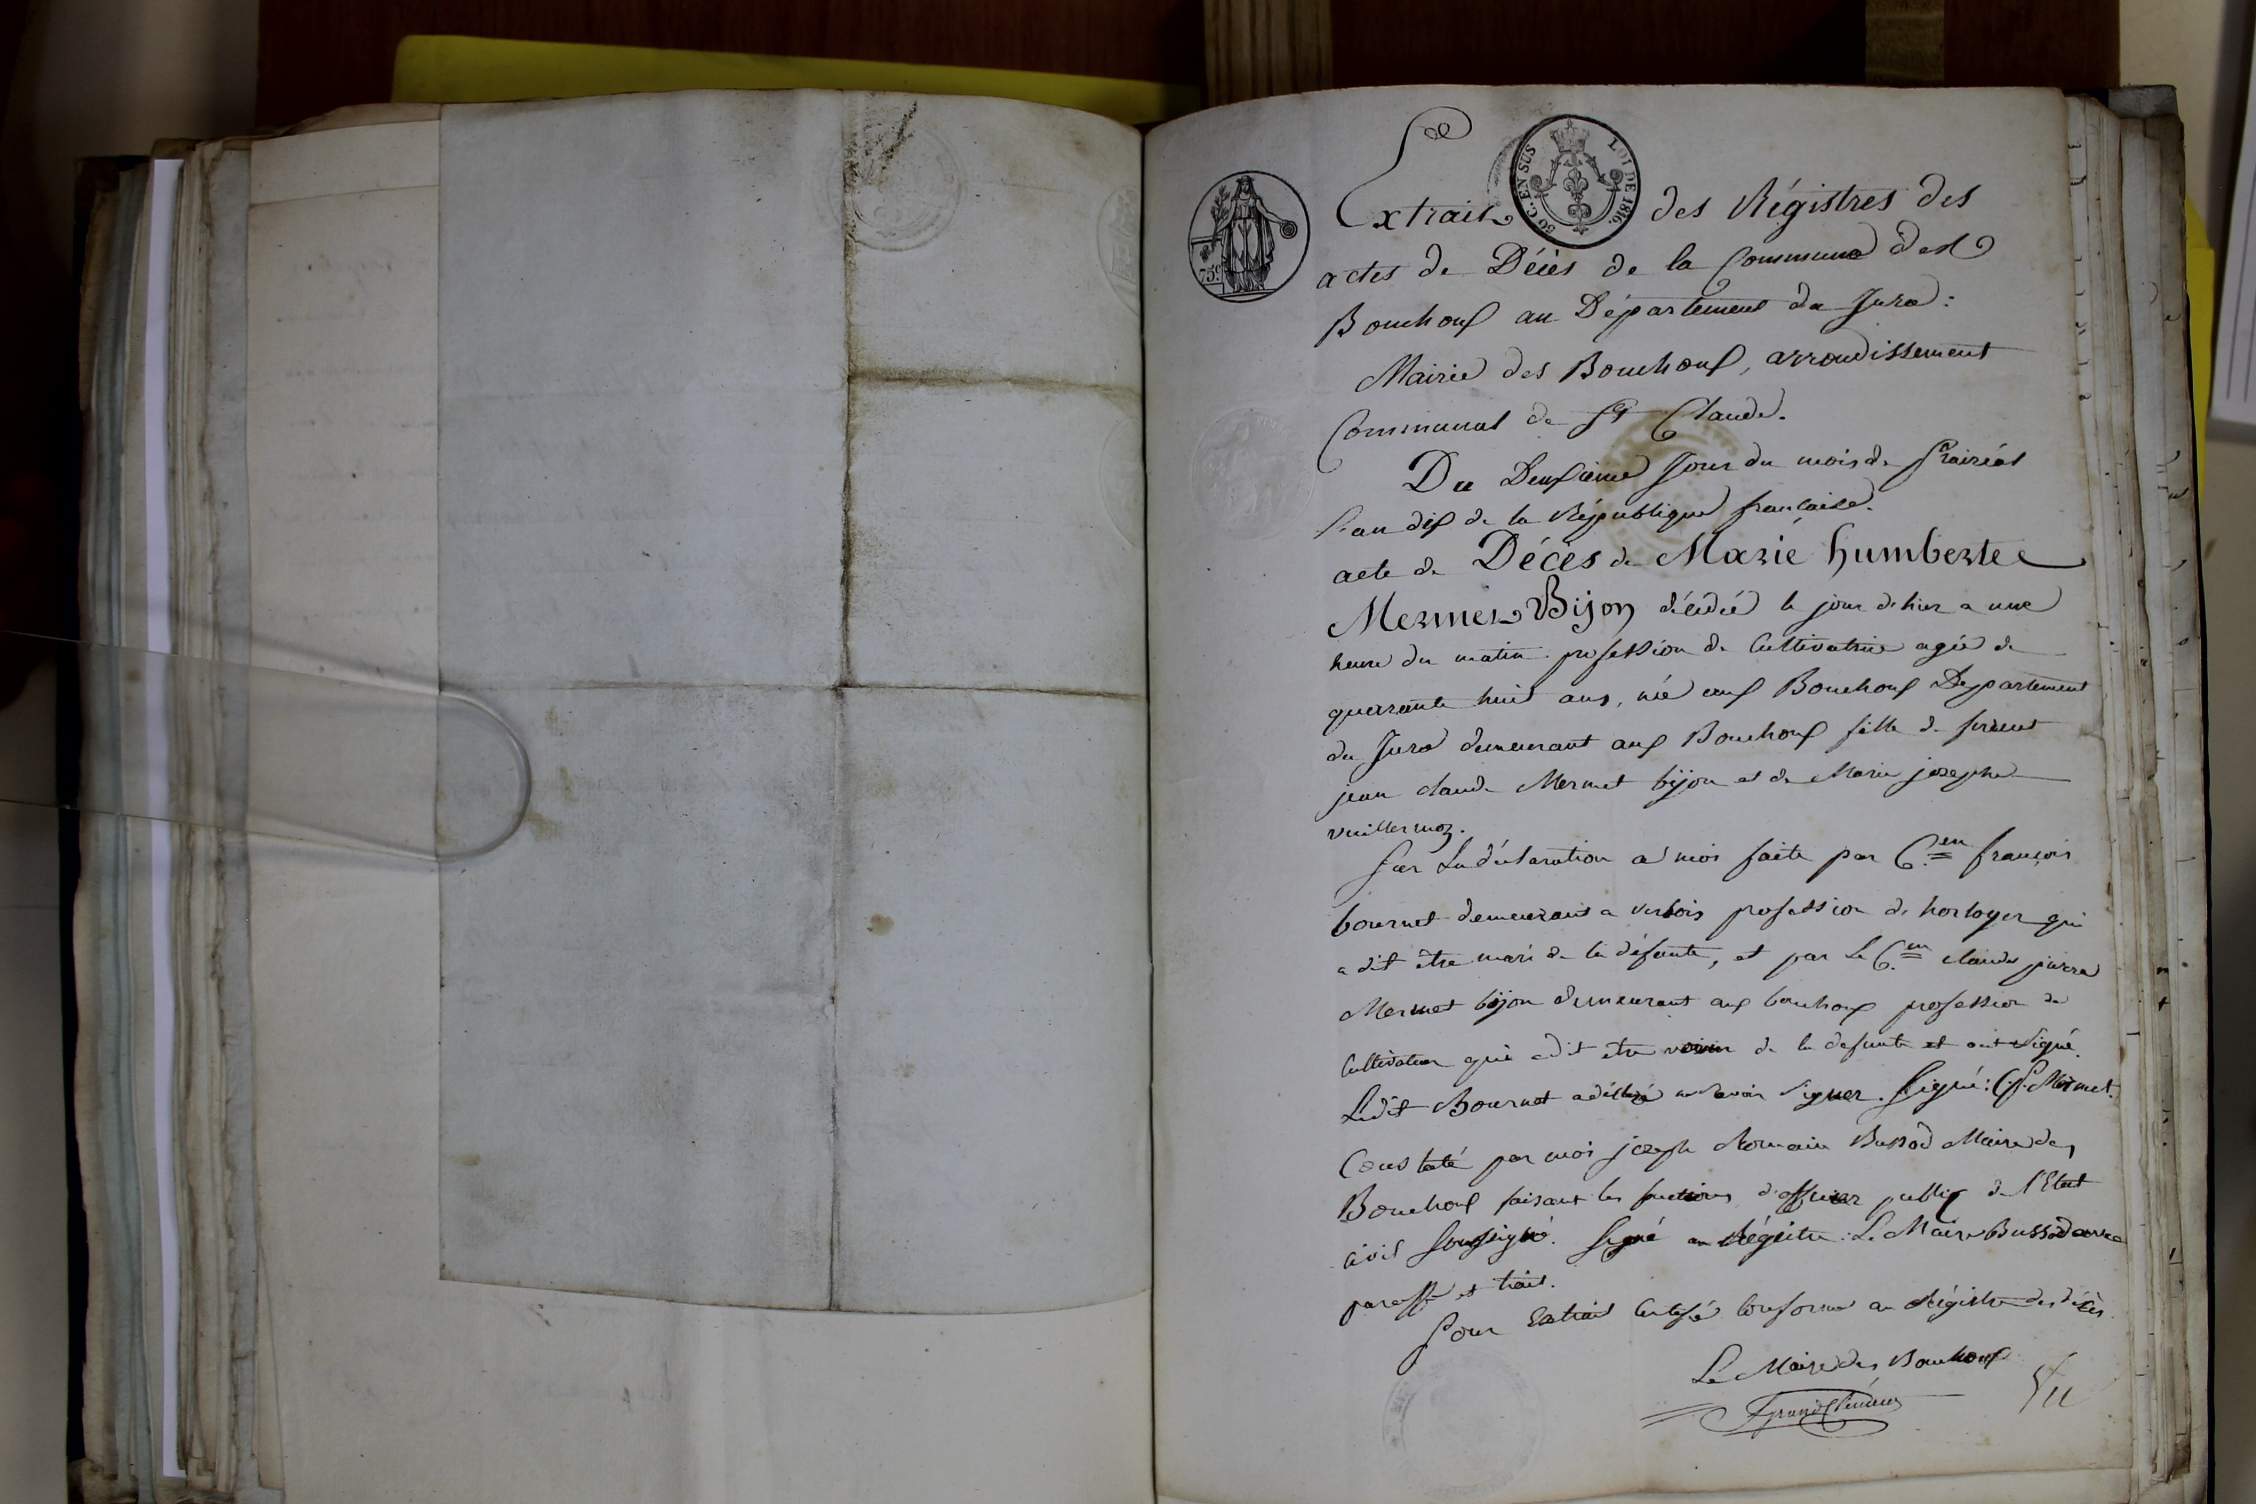 50 C. EN SUS
LOI DE 1816.
75c
Extrait des Régistres des
actes de Décès de la Commune des
Bouchoux au Département du Jura :
Mairie des Bouchoux, arrondissement
Communal de St Claude.
Du Deuxième Jour du mois de Prairial
l'an dix de la République française.
acte de Décès de Marie humberte
Mermet Bijon décédé le jour d'hier a une
heure du matin profession de Cultivatrice agée de
quarante huit ans, née aux Bouchoux Departement
du Jura demeurant aux Bouchoux fille de
jean claude Mermet bijon et de Marie josephe
vuillermoz.
Sur La déclaration a moi faite par C.en françois
bournet demeurant a profession de horloger qui
a dit être mari de la défunte, et par Le C.en claude pierre
Mermet bijon demeurant aux bouchoux profession de
Cultivateur qui a dit etre voisin de la defunte et ont signé.
Ledit Bournet a déclaré ne savoir signer. Signé : C.P. Mermet.
Constaté par moi joseph Romain Bussod Maire des
Bouchoux faisant les fonctions d'officier public de l'Etat
civil soussigné. Signé au Régistre : Le Maire Bussod avec
paraffe et trait.
Pour Extrait Certifié Conforme au Régistre des décès.
Le Maire des Bouchoux
Grandclément